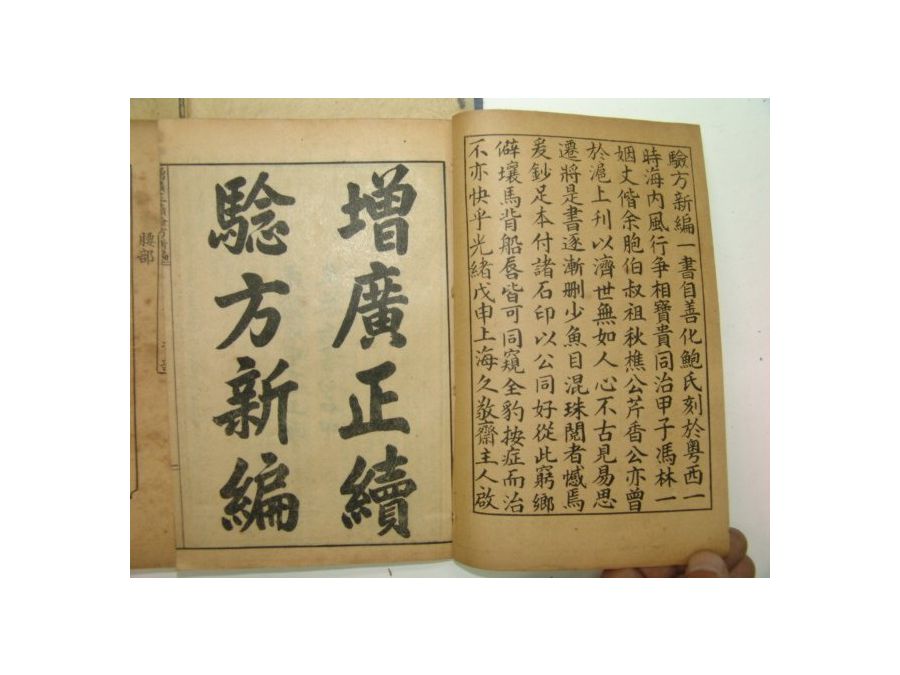 驗方新編一書自善化鮑氏刻於粵西一
時海內風行爭相寶貴同治甲子馮林一
姻丈偕余胞伯叔祖秋樵公芹香公亦曾
於滬上刊以濟世無如人心不古見易思
遷將是書逐漸刪少魚目混珠閱者憾焉
爰鈔足本付諸石印以公同好從此窮鄉
僻壤馬背船唇皆可同窺全豹按症而治
不亦快乎光緒戊申上海久敬齋主人啟
增廣正續
驗方新編
腰部